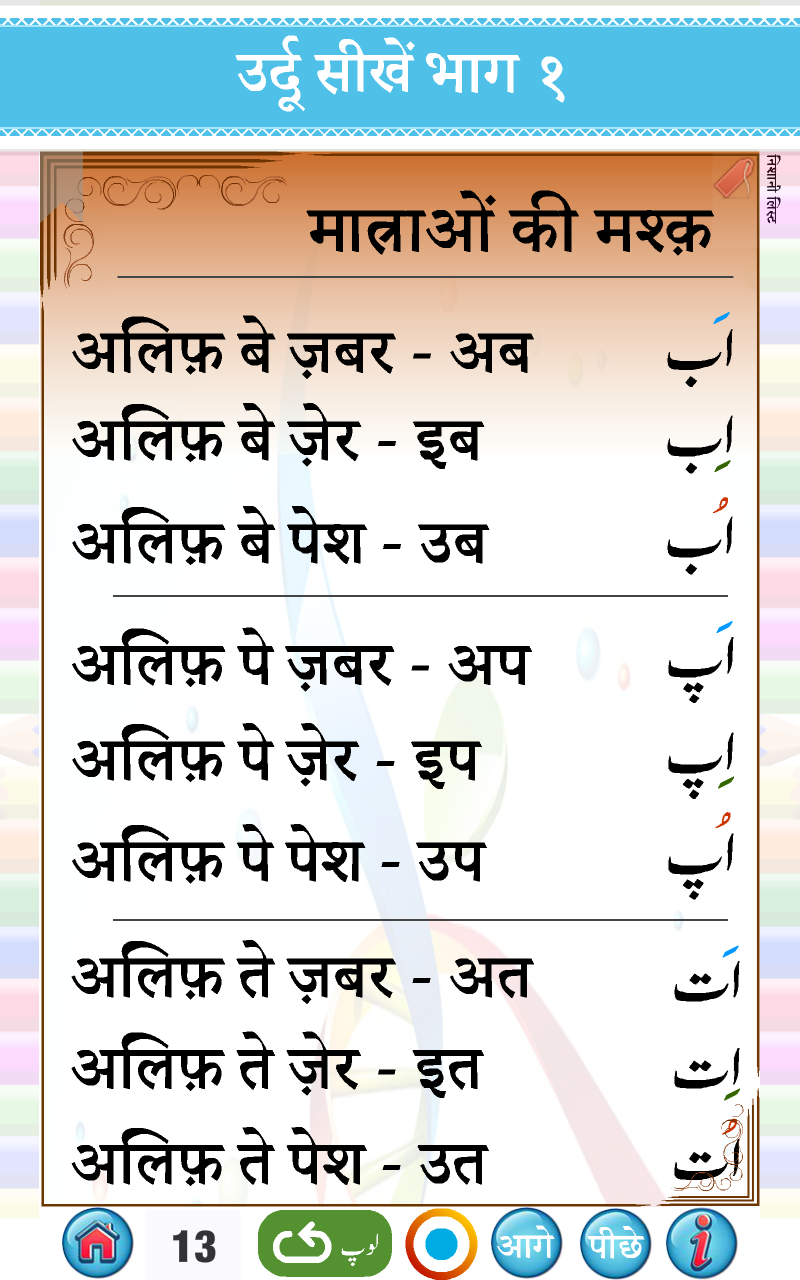 उर्दू सीखें भाग १
निशानी लिस्ट
मात्राओं की मश्क़
अलिफ़ बे ज़बर - अब اَب
अलिफ़ बे ज़ेर - इब اِب
अलिफ़ बे पेश - उब اُب
अलिफ़ पे ज़बर - अप اَپ
अलिफ़ पे ज़ेर - इप اِپ
अलिफ़ पे पेश - उप اُپ
अलिफ़ ते ज़बर - अत اَت
अलिफ़ ते ज़ेर - इत اِت
अलिफ़ ते पेश - उत اُت
13 لوپ आगे पीछे i